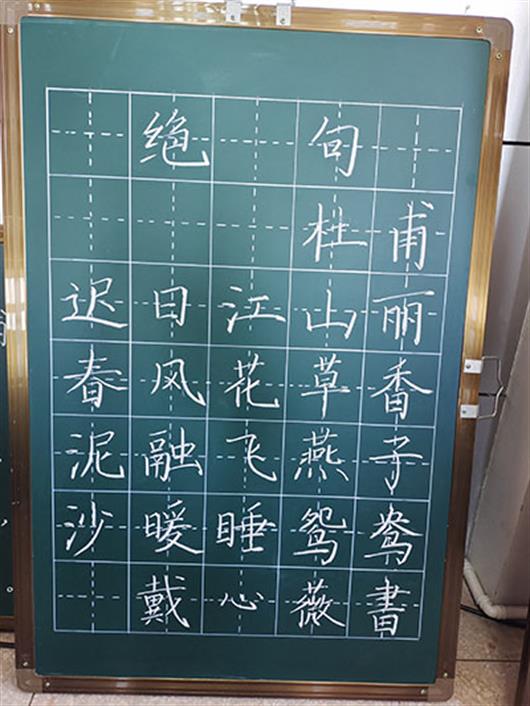 绝句
杜甫
迟日江山丽
春风花草香
泥融飞燕子
沙暖睡鸳鸯
戴心薇書